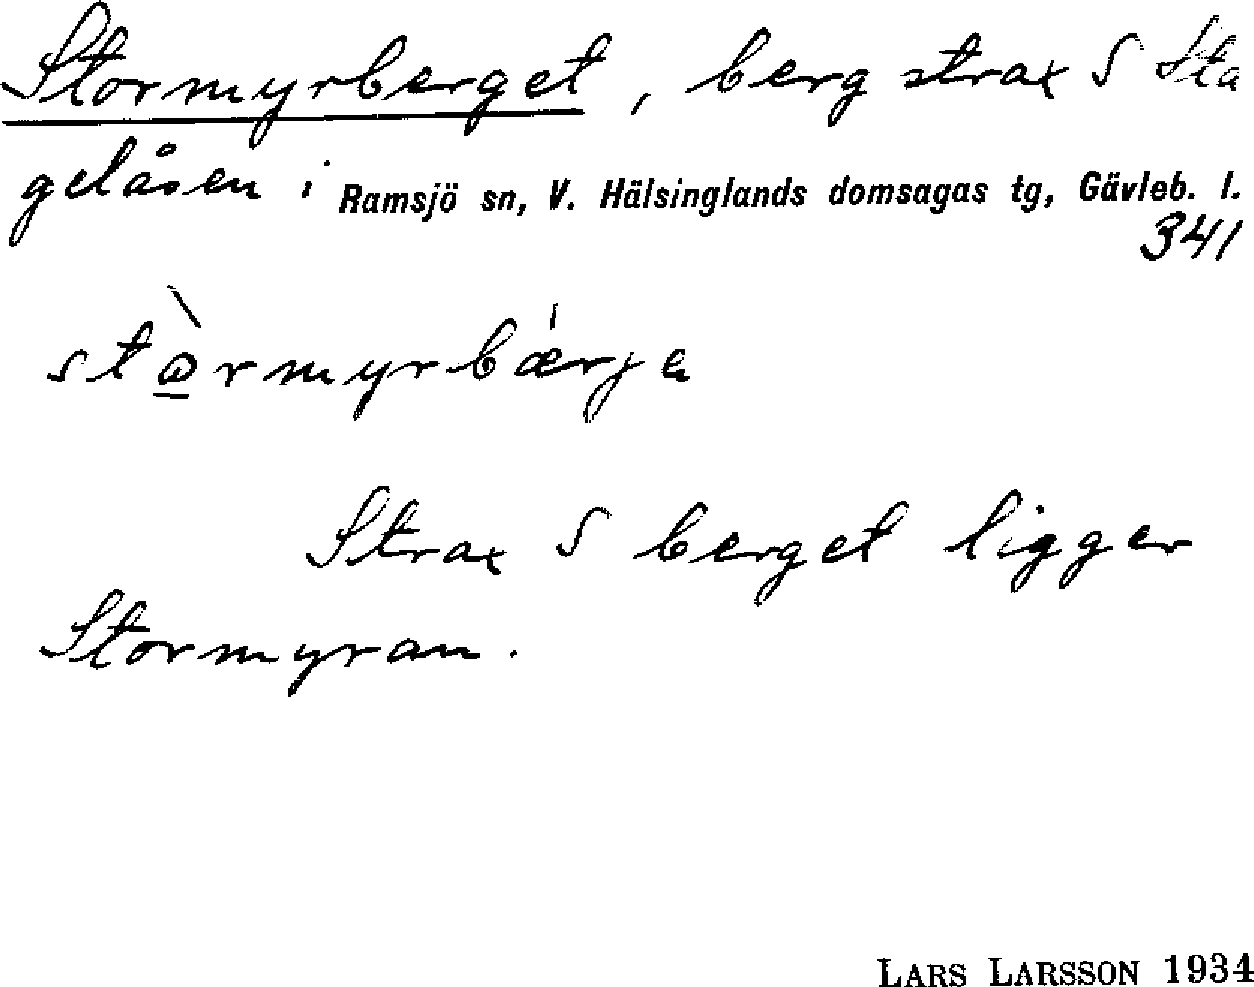 Stormyrberget, berg strax S Sta
gelåsen i Ramsjö sn, V. Hälsinglands domsagas tg, Gävleb. l.
341
Strax S berget ligger
Stormyran.
LARS LARSSON 1934